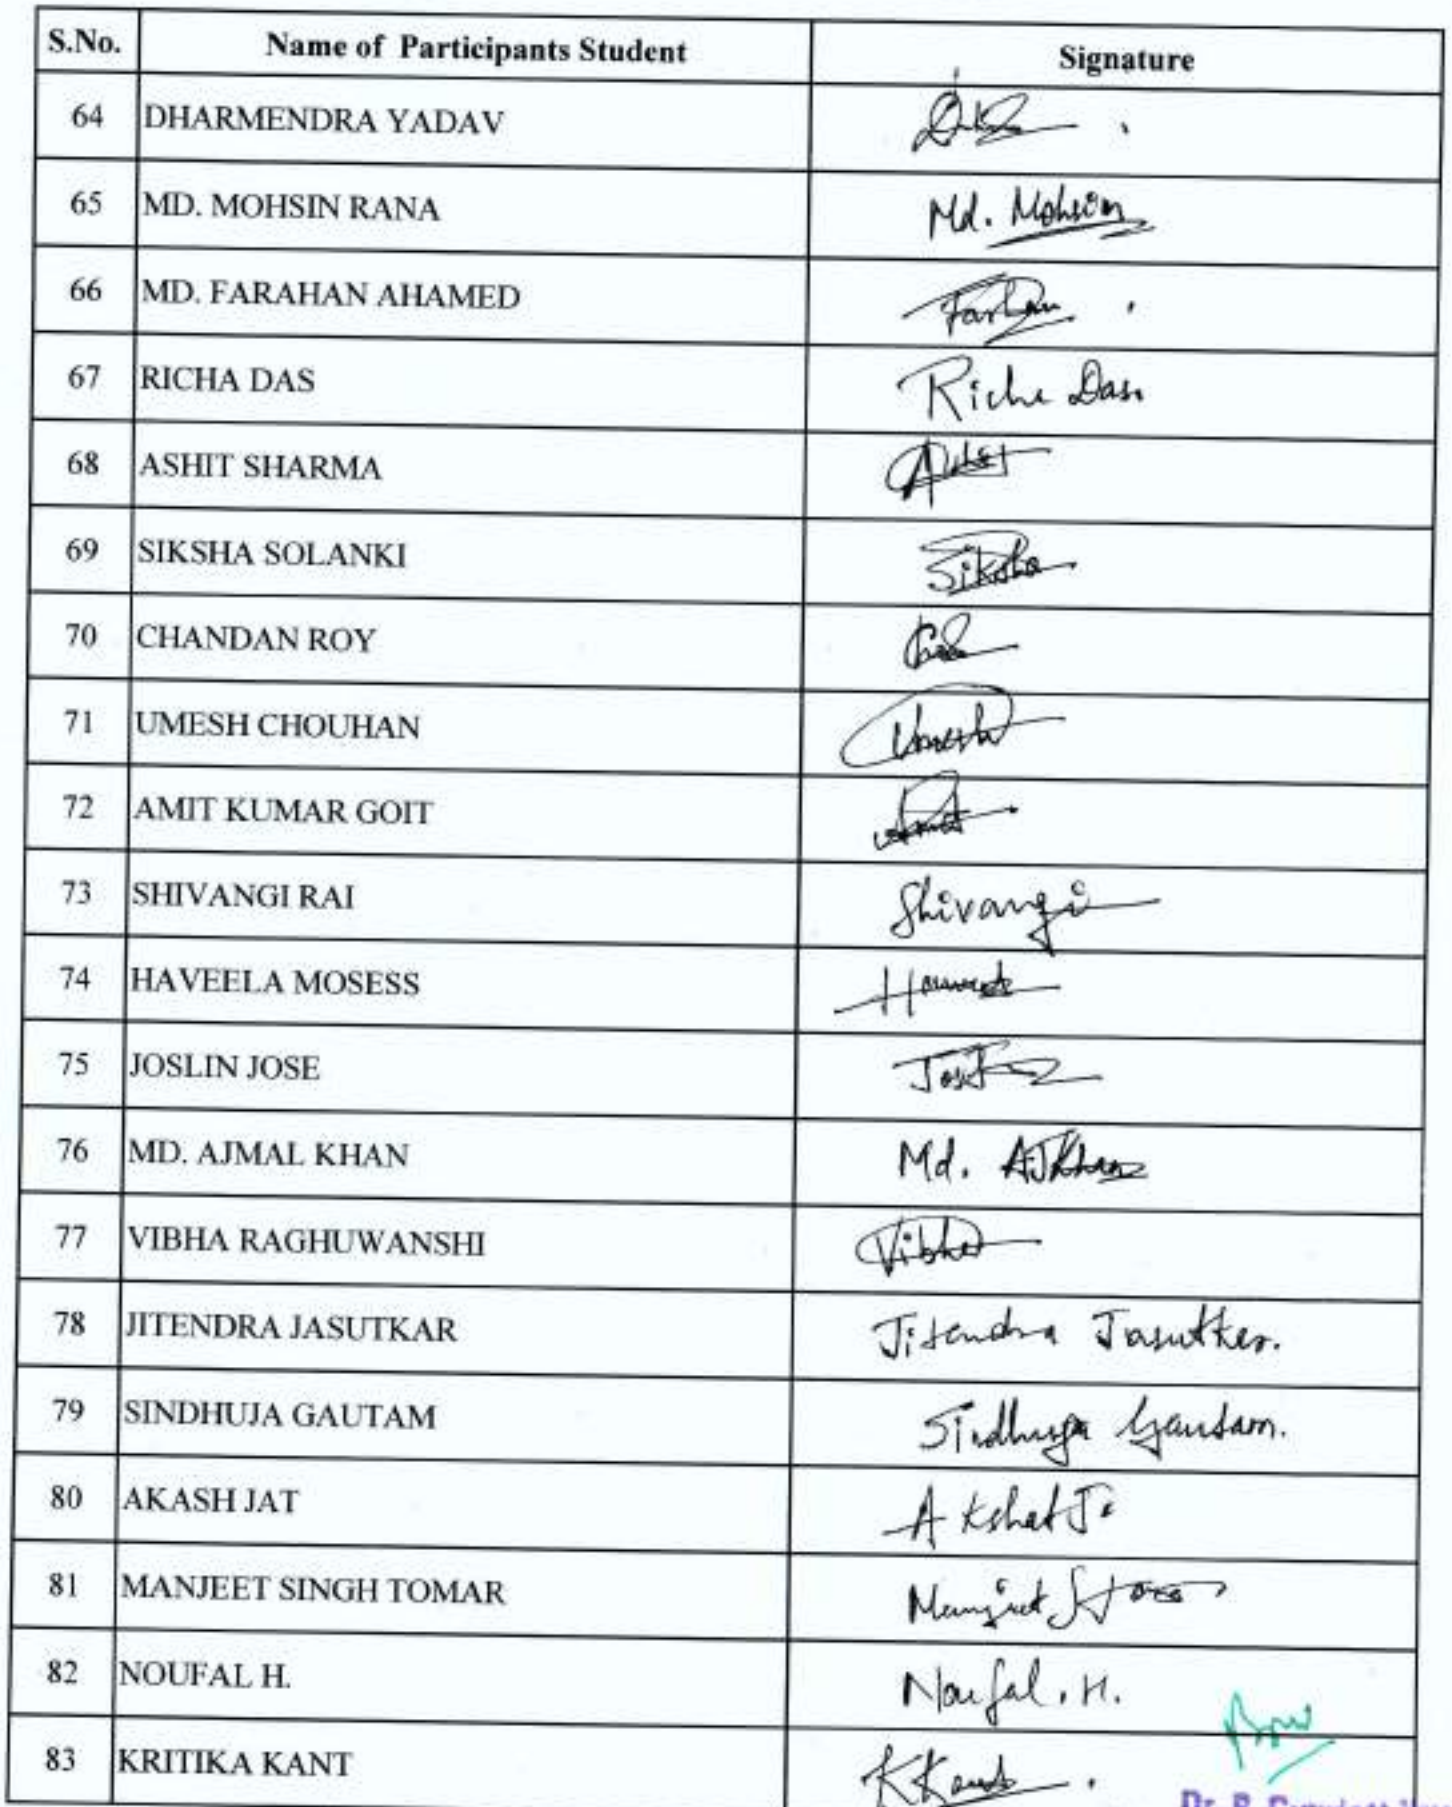 S.No. Name of Participants Student Signature
64 DHARMENDRA YADAV
65 MD. MOHSIN RANA Md. Mohsin
66 MD. FARAHAN AHAMED Farhan
67 RICHA DAS Richa Das.
68 ASHIT SHARMA
69 SIKSHA SOLANKI Siksha
70 CHANDAN ROY
71 UMESH CHOUHAN Umesh
72 AMIT KUMAR GOIT Amit
73 SHIVANGI RAI Shivangi
74 HAVEELA MOSESS
75 JOSLIN JOSE
76 MD. AJMAL KHAN Md. AJKhan
77 VIBHA RAGHUWANSHI Vibha
78 JITENDRA JASUTKAR Jitendra Jasutker.
79 SINDHUJA GAUTAM Sindhuja Gautam.
80 AKASH JAT Akshat J.
81 MANJEET SINGH TOMAR Manjeet
82 NOUFAL H. Noufal. H.
83 KRITIKA KANT KKant.
Dr.